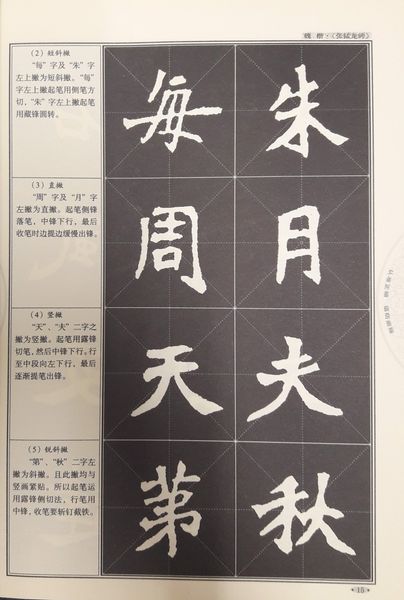 魏 楷·《张猛龙碑》
(2) 短斜撇
“每”字及“朱”字
左上撇为短斜撇。“每”
字左上撇起笔用侧笔方
切，“朱”字左上撇起笔
用藏锋圆转。
每 朱
(3) 直撇
“周”字及“月”字
左撇为直撇。起笔侧锋
落笔，中锋下行，最后
收笔时边提边缓慢出锋。
周 月
(4) 竖撇
“天”、“夫”二字之
撇为竖撇。起笔用露锋
切笔，然后中锋下行。行
至中段向左下行，最后
逐渐提笔出锋。
天 夫
(5) 锐斜撇
“第”、“秋”二字左
撇为斜撇。且此撇均与
竖画紧贴。所以起笔运
用露锋侧切法，行笔用
中锋，收笔要斩钉截铁。
苐 秋
15